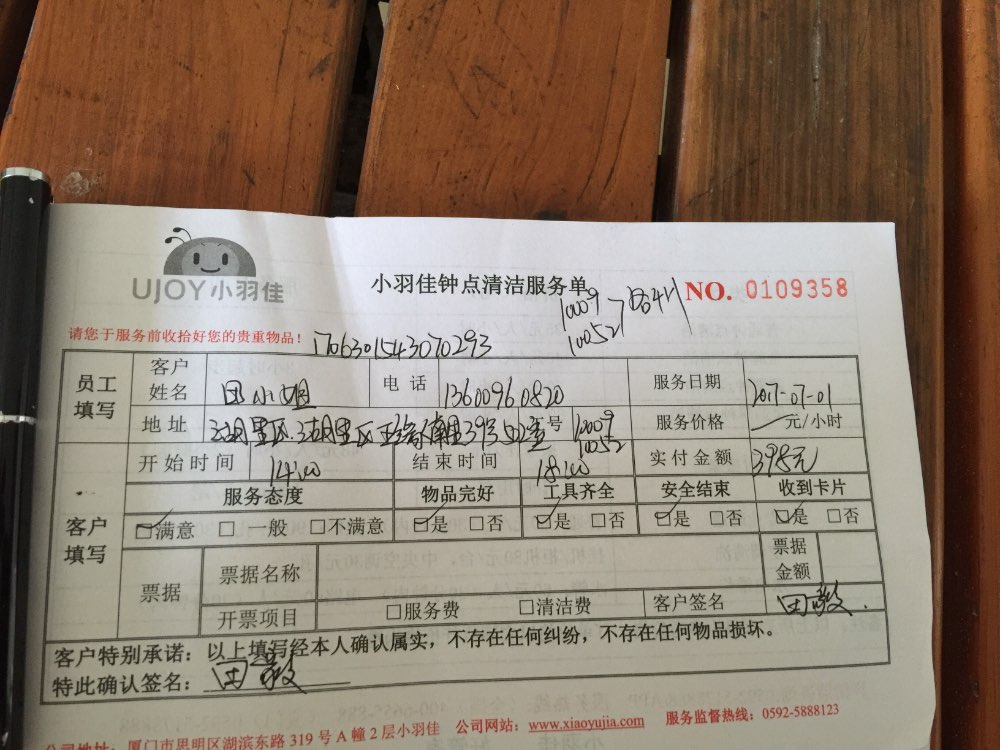 UJOY小羽佳
小羽佳钟点清洁服务单
NO. 0109358
10009
10052
请您于服务前收拾好您的贵重物品！
1706301543070293
员工填写
客户姓名
电话 13600960820
服务日期 2017-07-01
地址
号 10009
10052
服务价格 元/小时
开始时间 14:00
结束时间 18:00
实付金额 398元
客户填写
服务态度 物品完好 工具齐全 安全结束 收到卡片
☑满意 □一般 □不满意 ☑是 □否 ☑是 □否 ☑是 □否 ☑是 □否
票据
票据名称
票据金额
开票项目 □服务费 □清洁费 客户签名 田毅
客户特别承诺：以上填写经本人确认属实，不存在任何纠纷，不存在任何物品损坏。
特此确认签名：田毅
公司地址：厦门市思明区湖滨东路 319 号 A 幢 2 层小羽佳 公司网站：www.xiaoyujia.com 服务监督热线：0592-5888123